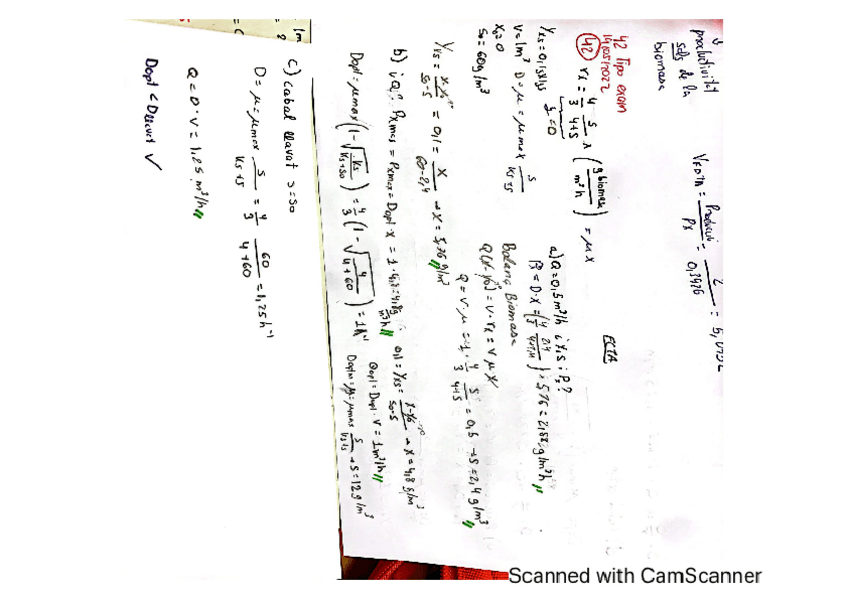 productivitat
sols de la
biomassa
V = Producció / Px = 2 / 0,3476 = 5,
42 Tipo exam
19/05/2022
ECTA
(42) rx = 4/3 · S/(4+S) · x (g biomassa / m³h) = μx
Yxs = 0,1
V = 1m³ D = μ = μmax S/(Ks+S)
x0 = 0
S0 = 60g/m³
a) Q = 0,5m³/h ¿ X i S i Px?
Px = D·X = (4/3 · 2,4/(4+2,4)) · 5,76 = 2,88 g/m³h
Balanç Biomassa
Q(X-X0) = V·rx = V μ X
Q = V·μ = 1 · 4/3 · S/(4+S) = 0,5 → S = 2,4 g/m³
Yxs = (X-X0)/(S0-S) = 0,1 = X/(60-2,4) → X = 5,76 g/m³
b) ¿Q? Pxmax = Pxmax = Dopt·X = 1·4,8 = 4,8 g/m³h
0,1 = Yxs = (X-X0)/(S0-S) → X = 4,8 g/m³
Dopt = μmax (1 - √(Ks/(Ks+S0))) = 4/3 (1 - √(4/(4+60))) = 1h⁻¹
Qopt = Dopt·V = 1m³/h
Dopt = μ = μmax S/(Ks+S) → S = 12 g/m³
c) cabal llavat S = S0
D = μ = μmax S/(Ks+S) = 4/3 · 60/(4+60) = 1,25 h⁻¹
Q = D·V = 1,25 m³/h
Dopt < Dllavat √
Scanned with CamScanner